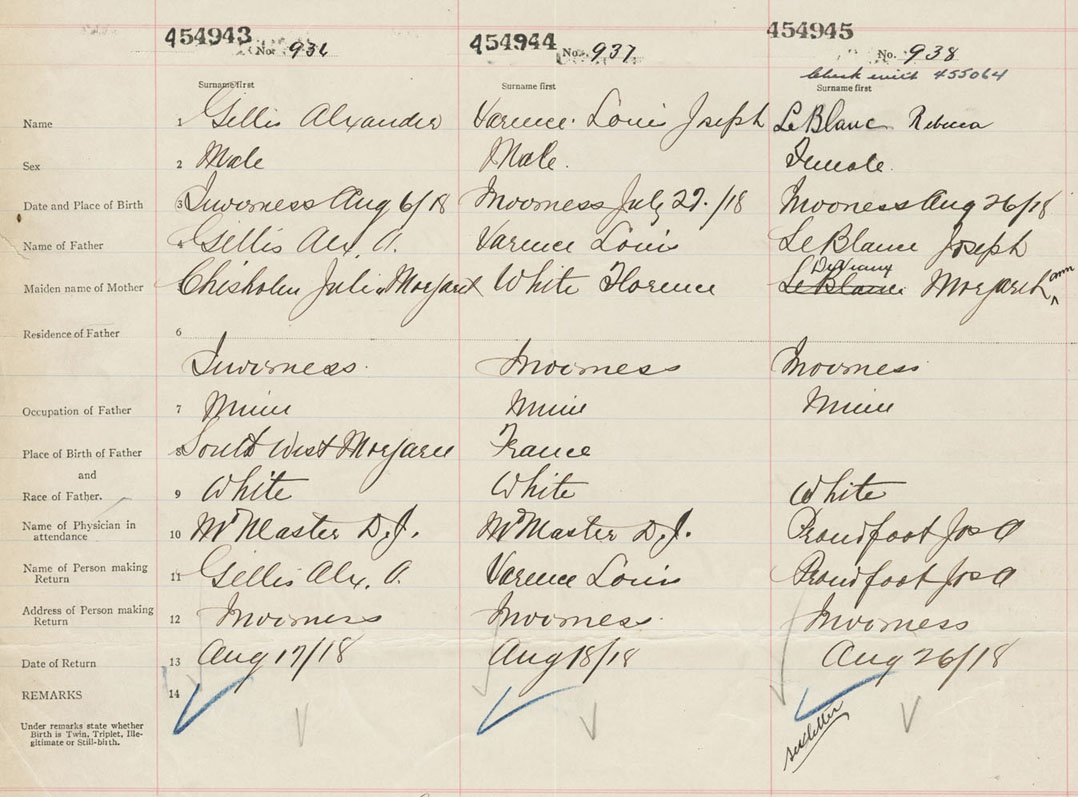 454943 454944 454945
No. 936 No. 937 No. 938
Check with 455064
Surname first Surname first Surname first
Name 1 Gillis Alexander Varence Louis Joseph LeBlanc Rebecca
Sex 2 Male Male. Female.
Date and Place of Birth 3 Inverness Aug 6/18 Inverness July 27./18 Inverness Aug 26/18
Name of Father 4 Gillis Alex. A. Varence Louis LeBlanc Joseph
Maiden name of Mother Chisholm Julia Margaret White Florence LeBlanc Margaret Ann
Residence of Father 6
Inverness. Inverness Inverness
Occupation of Father 7 Miner Miner Miner
Place of Birth of Father 8 South West Margaree France
and
Race of Father. 9 White White White
Name of Physician in attendance 10 McMaster D.J. McMaster D.J. Proudfoot Jos A
Name of Person making Return 11 Gillis Alex. A. Varence Louis Proudfoot Jos A
Address of Person making Return 12 Inverness Inverness. Inverness
Date of Return 13 Aug 17/18 Aug 18/18 Aug 26/18
REMARKS 14
Under remarks state whether
Birth is Twin, Triplet, Ille-
gitimate or Still-birth.
see letter